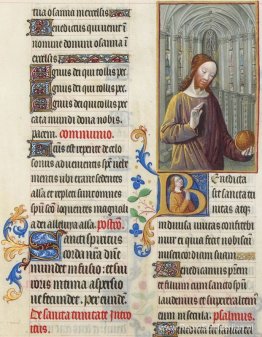 tria osanna in excelsis
Benedictus qui uenit in
nomine domini osanna in
excelsis
Agnus dei qui tollis pec
Agnus dei qui tollis pec
Agnus dei qui tollis pec
cata mundi dona nobis
pacem communio
est repente de celo
sonus
erant sedentes
alla et repleti sunt omnes
spiritu loquentes magnali
a dei alleluya alla. postco
Sancti spiritus
corda nostra
mundet infusio: et sui
roris intima aspersio
ne fecundet. per eiusdem
De sancta trinitate Intro
itus.
Benedicta
sit sancta tri
nitas atque
indiuisa unitas confitebi
mur ei quia fecit nobiscum
misericordiam suam
Benedicamus patrem
et filium cum sancto spiritu
laudemus et superexaltemus
eum in secula. psalmus.